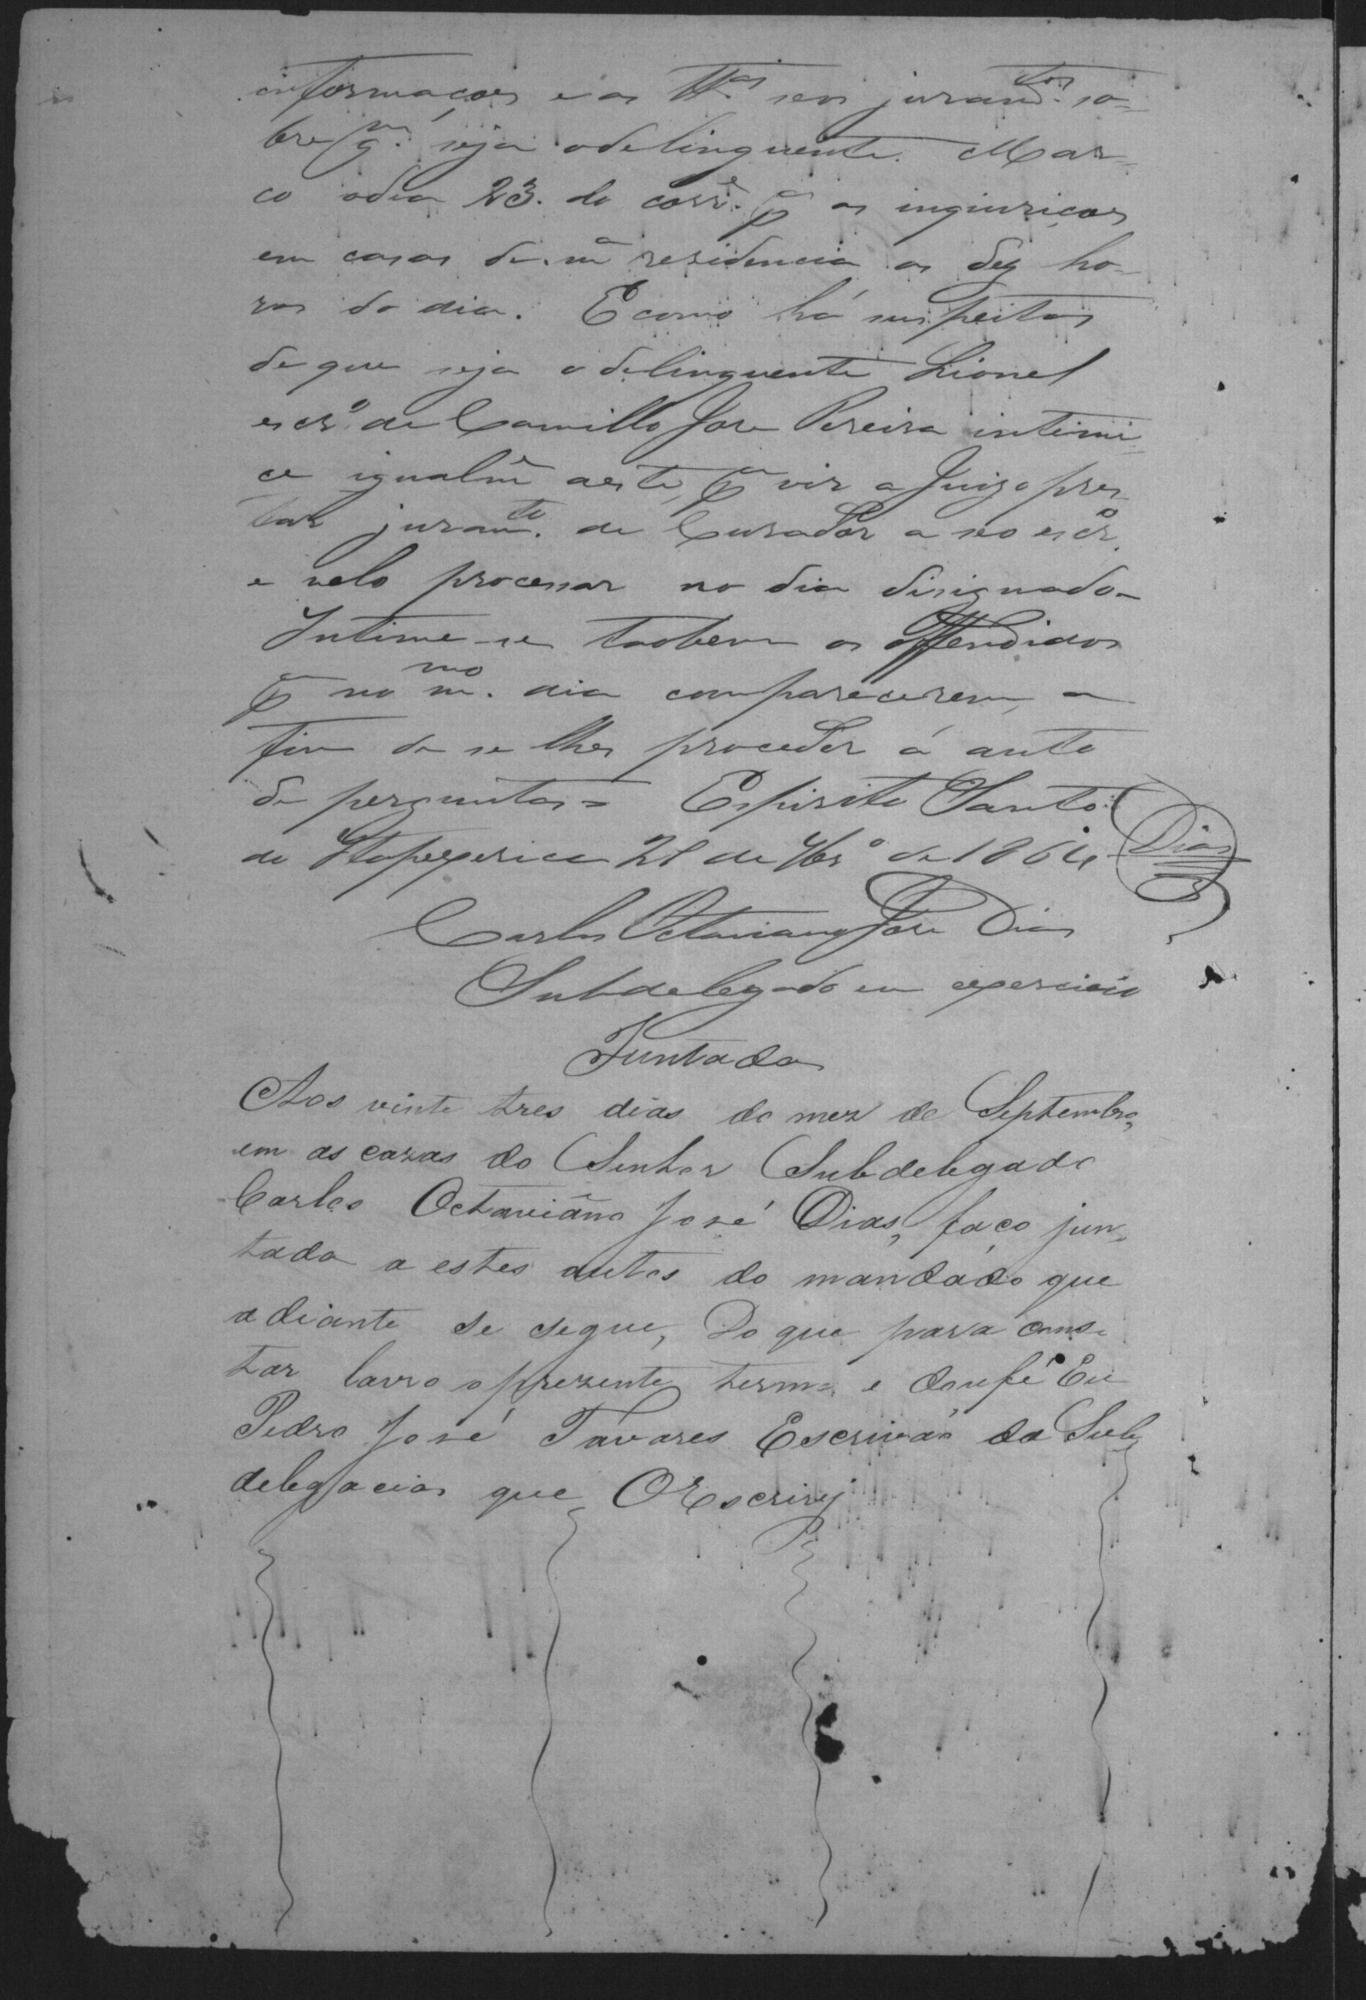 informações e as tt.as seos juram.tos so-
bre q.m seja o delinquente. Mar-
co o dia 23. do corr.e p.a as inquiriçoes
em casas de m.a residencia as dez ho-
ras do dia. E como há suspeitas
de que seja o delinquente Lionel
escr.o de Camillo Jose Pereira intimi-
ce igualm.e a este p.a vir a Juizo pres-
tar juram.to de Curador a seo escr.o
e velo processar no dia disignado
Intime-se taobem os offendidos
p.a no m.mo dia comparecerem, a
fim de se lhes proceder á auto
de perguntas = Espirito Santo
de Itapecerica 21 de 7br.o de 1864
Dias
Carlos Octaviano Jose Dias
Subdelegado em exercicio
Juntada
Aos vinte tres dias do mez de Septembro,
em as cazas do Senhor Subdelegado
Carlos Octaviãno José Dias, faço jun-
tada a estes autos do mandádo que
adiante se segue, Do que para cons-
tar lavro o prezente termo e dou fé Eu
Pedro José Tavares Escrivão da Sub
delegacia que O Escrivy